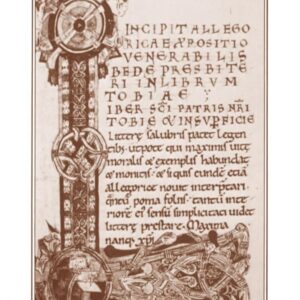 INCIPIT ALLEGO
RICA EXPOSITIO
VENERABILIS
BEDE PRESBITE
RI IN LIBRVM
TOBIAE
IBER SCI PATRIS NRI
TOBIE QVI INSVPFICIE
Littere salubris patet legen
tib; utpote qui maximis uite
moralis & exemplis habundat
& monitis. & si quis eundē etiā
allegorice nouit interp̄tari.
quātū poma foliis. tantū inte
riorē ei sensū simplicitati uidet
littere prestare. Maxima
nanq; xp̄i